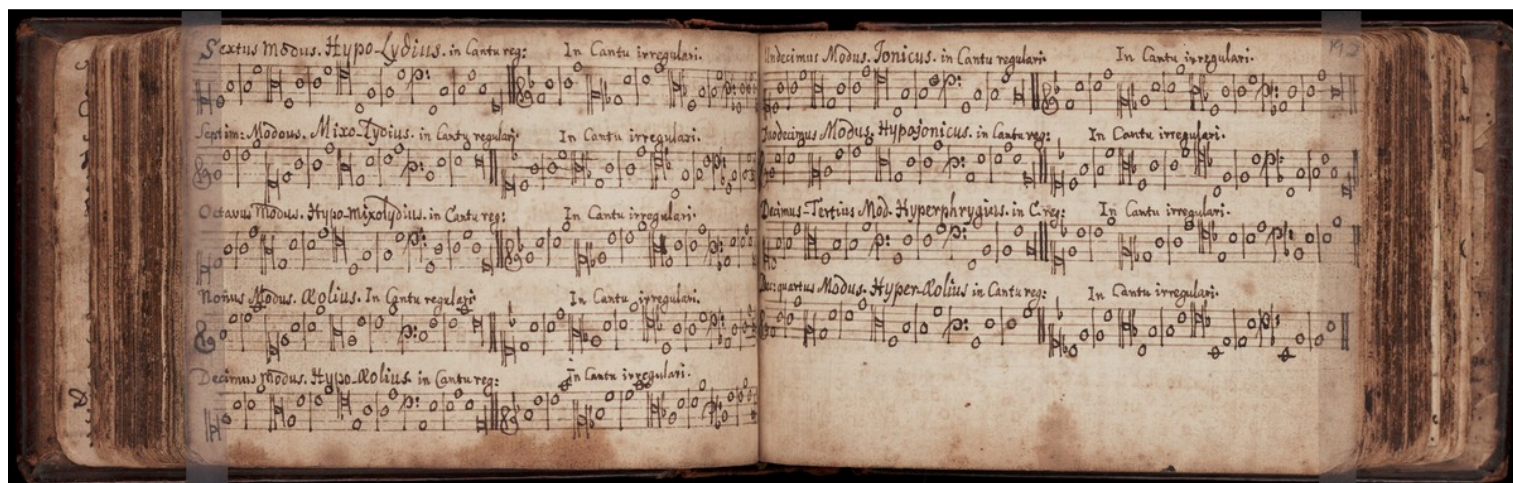 Sextus Modus. Hypo-Lydius. in Cantu reg: In Cantu irregulari.
Septim: Modus. Mixo-Lydius. in Cantu regulari: In Cantu irregulari.
Octavus Modus. Hypo-mixolydius. in Cantu reg: In Cantu irregulari.
Nonus Modus. Æolius. In Cantu regulari In Cantu irregulari.
Decimus Modus. Hypo-Æolius. in Cantu reg: In Cantu irregulari.
Undecimus Modus. Jonicus. in Cantu regulari In Cantu irregulari.
Duodecimus Modus. Hypojonicus. in Cantu reg: In Cantu irregulari.
Decimus-Tertius Mod. Hyperphrygius. in C. reg: In Cantu irregulari.
Dec: quartus Modus. Hyper-Æolius in Cantu reg: In Cantu irregulari.